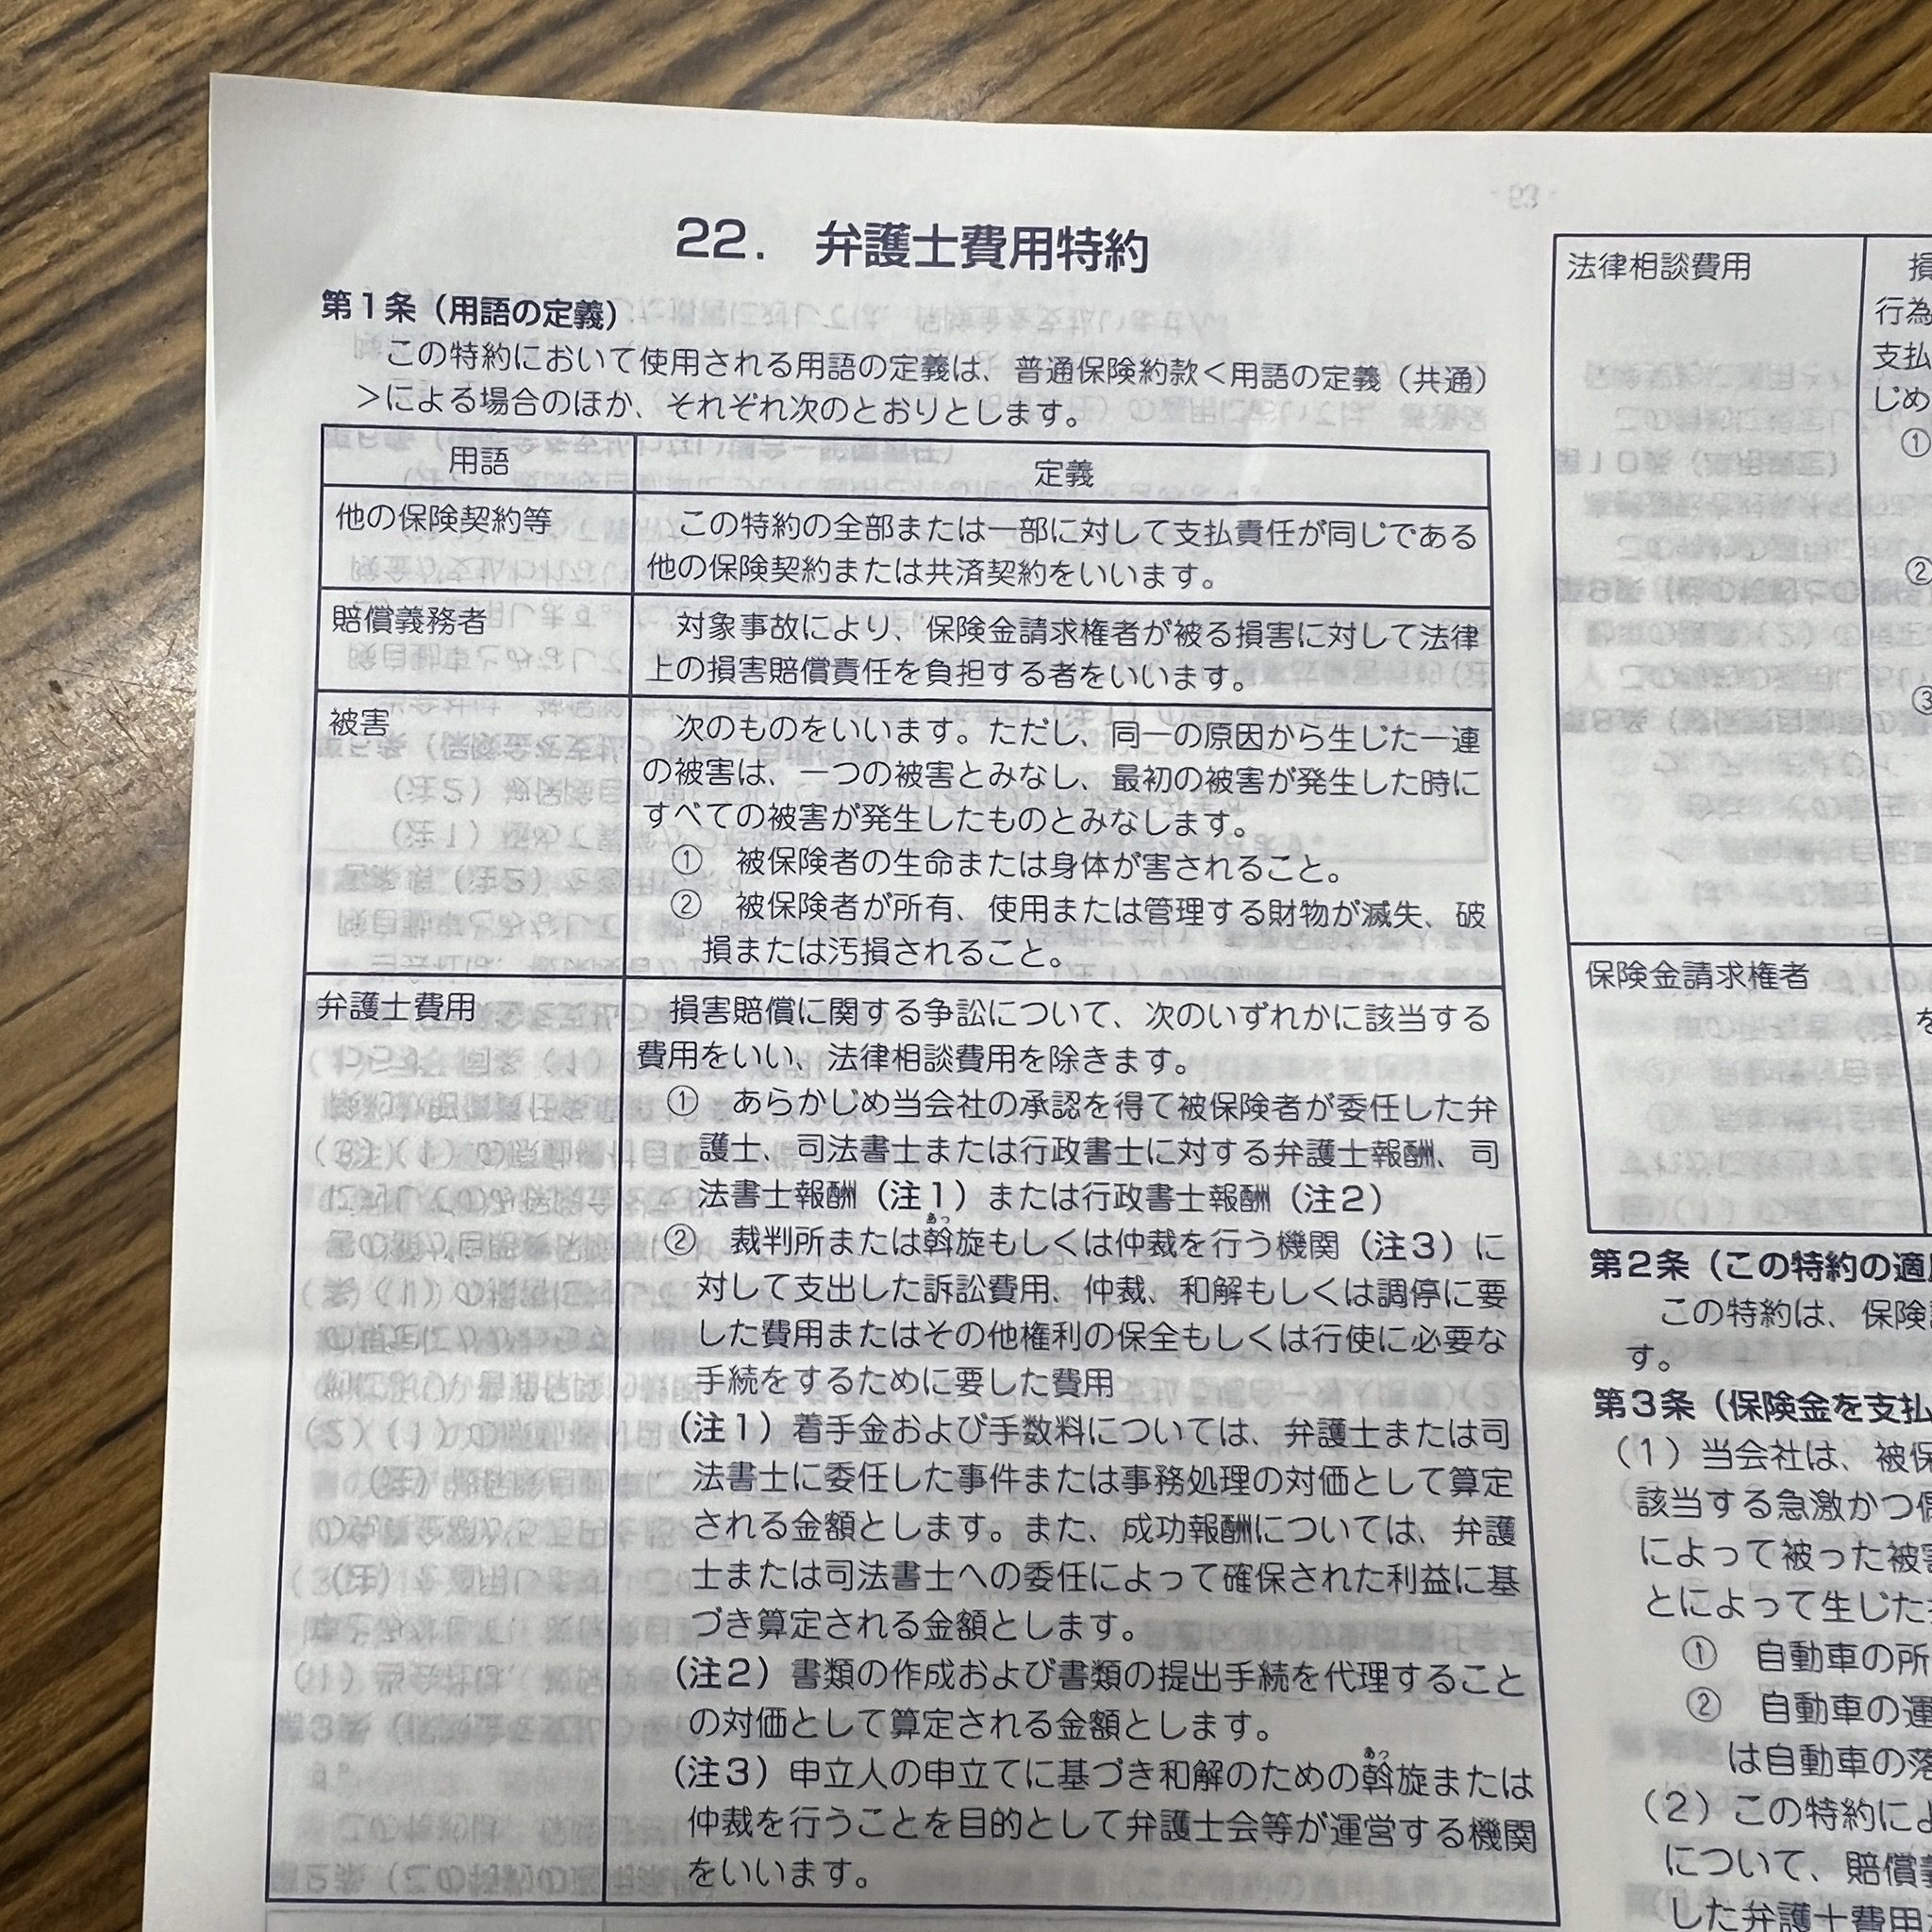 22. 弁護士費用特約
第1条（用語の定義）
この特約において使用される用語の定義は、普通保険約款＜用語の定義（共通）
＞による場合のほか、それぞれ次のとおりとします。
用語
定義
他の保険契約等
この特約の全部または一部に対して支払責任が同じである
他の保険契約または共済契約をいいます。
賠償義務者
対象事故により、保険金請求権者が被る損害に対して法律
上の損害賠償責任を負担する者をいいます。
被害
次のものをいいます。ただし、同一の原因から生じた一連
の被害は、一つの被害とみなし、最初の被害が発生した時に
すべての被害が発生したものとみなします。
① 被保険者の生命または身体が害されること。
② 被保険者が所有、使用または管理する財物が滅失、破
損または汚損されること。
弁護士費用
損害賠償に関する争訟について、次のいずれかに該当する
費用をいい、法律相談費用を除きます。
① あらかじめ当会社の承認を得て被保険者が委任した弁
護士、司法書士または行政書士に対する弁護士報酬、司
法書士報酬（注1）または行政書士報酬（注2）
あっ
② 裁判所または斡旋もしくは仲裁を行う機関（注3）に
対して支出した訴訟費用、仲裁、和解もしくは調停に要
した費用またはその他権利の保全もしくは行使に必要な
手続をするために要した費用
（注1）着手金および手数料については、弁護士または司
法書士に委任した事件または事務処理の対価として算定
される金額とします。また、成功報酬については、弁護
士または司法書士への委任によって確保された利益に基
づき算定される金額とします。
（注2）書類の作成および書類の提出手続を代理すること
の対価として算定される金額とします。
あっ
（注3）申立人の申立てに基づき和解のための斡旋または
仲裁を行うことを目的として弁護士会等が運営する機関
をいいます。
法律相談費用
損
行為
支払
じめ
①
②
③
保険金請求権者
を
第2条（この特約の適用
この特約は、保険
す。
第3条（保険金を支払
（1）当会社は、被保
該当する急激かつ偶
によって被った被害
とによって生じた
① 自動車の所
② 自動車の運
は自動車の落
（2）この特約によ
について、賠償義
した弁護士費用